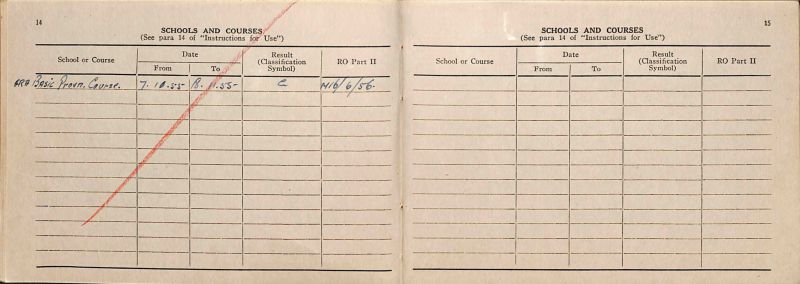 14
SCHOOLS AND COURSES
(See para 14 of "Instructions for Use")
School or Course
Date
From
To
Result
(Classification
Symbol)
RO Part II
Basic Provn. Course.
7. 10.55
18. 11.55
C
15
SCHOOLS AND COURSES
(See para 14 of "Instructions for Use")
School or Course
Date
From
To
Result
(Classification
Symbol)
RO Part II